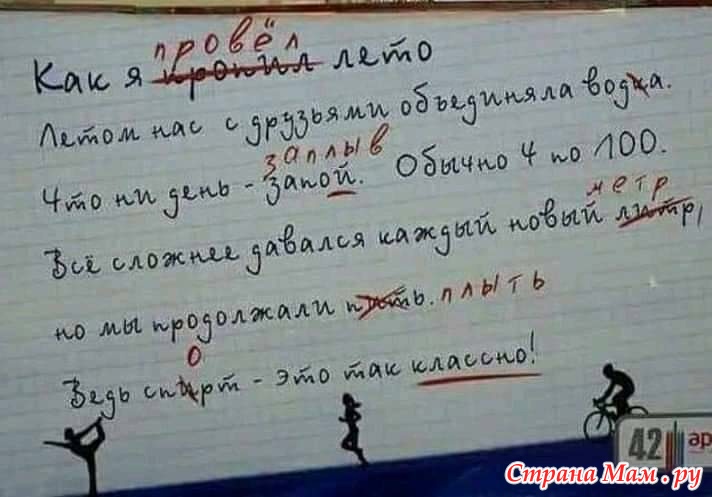 провёл
Как я пропил лето
Летом нас с друзьями объединяла водка.
заплыв
Что ни день - запой. Обычно 4 по 100.
метр
Всё сложнее давался каждый новый литр,
но мы продолжали пить. плыть
о
Ведь спирт - это так классно!
42 ар
Страна Мам.ру